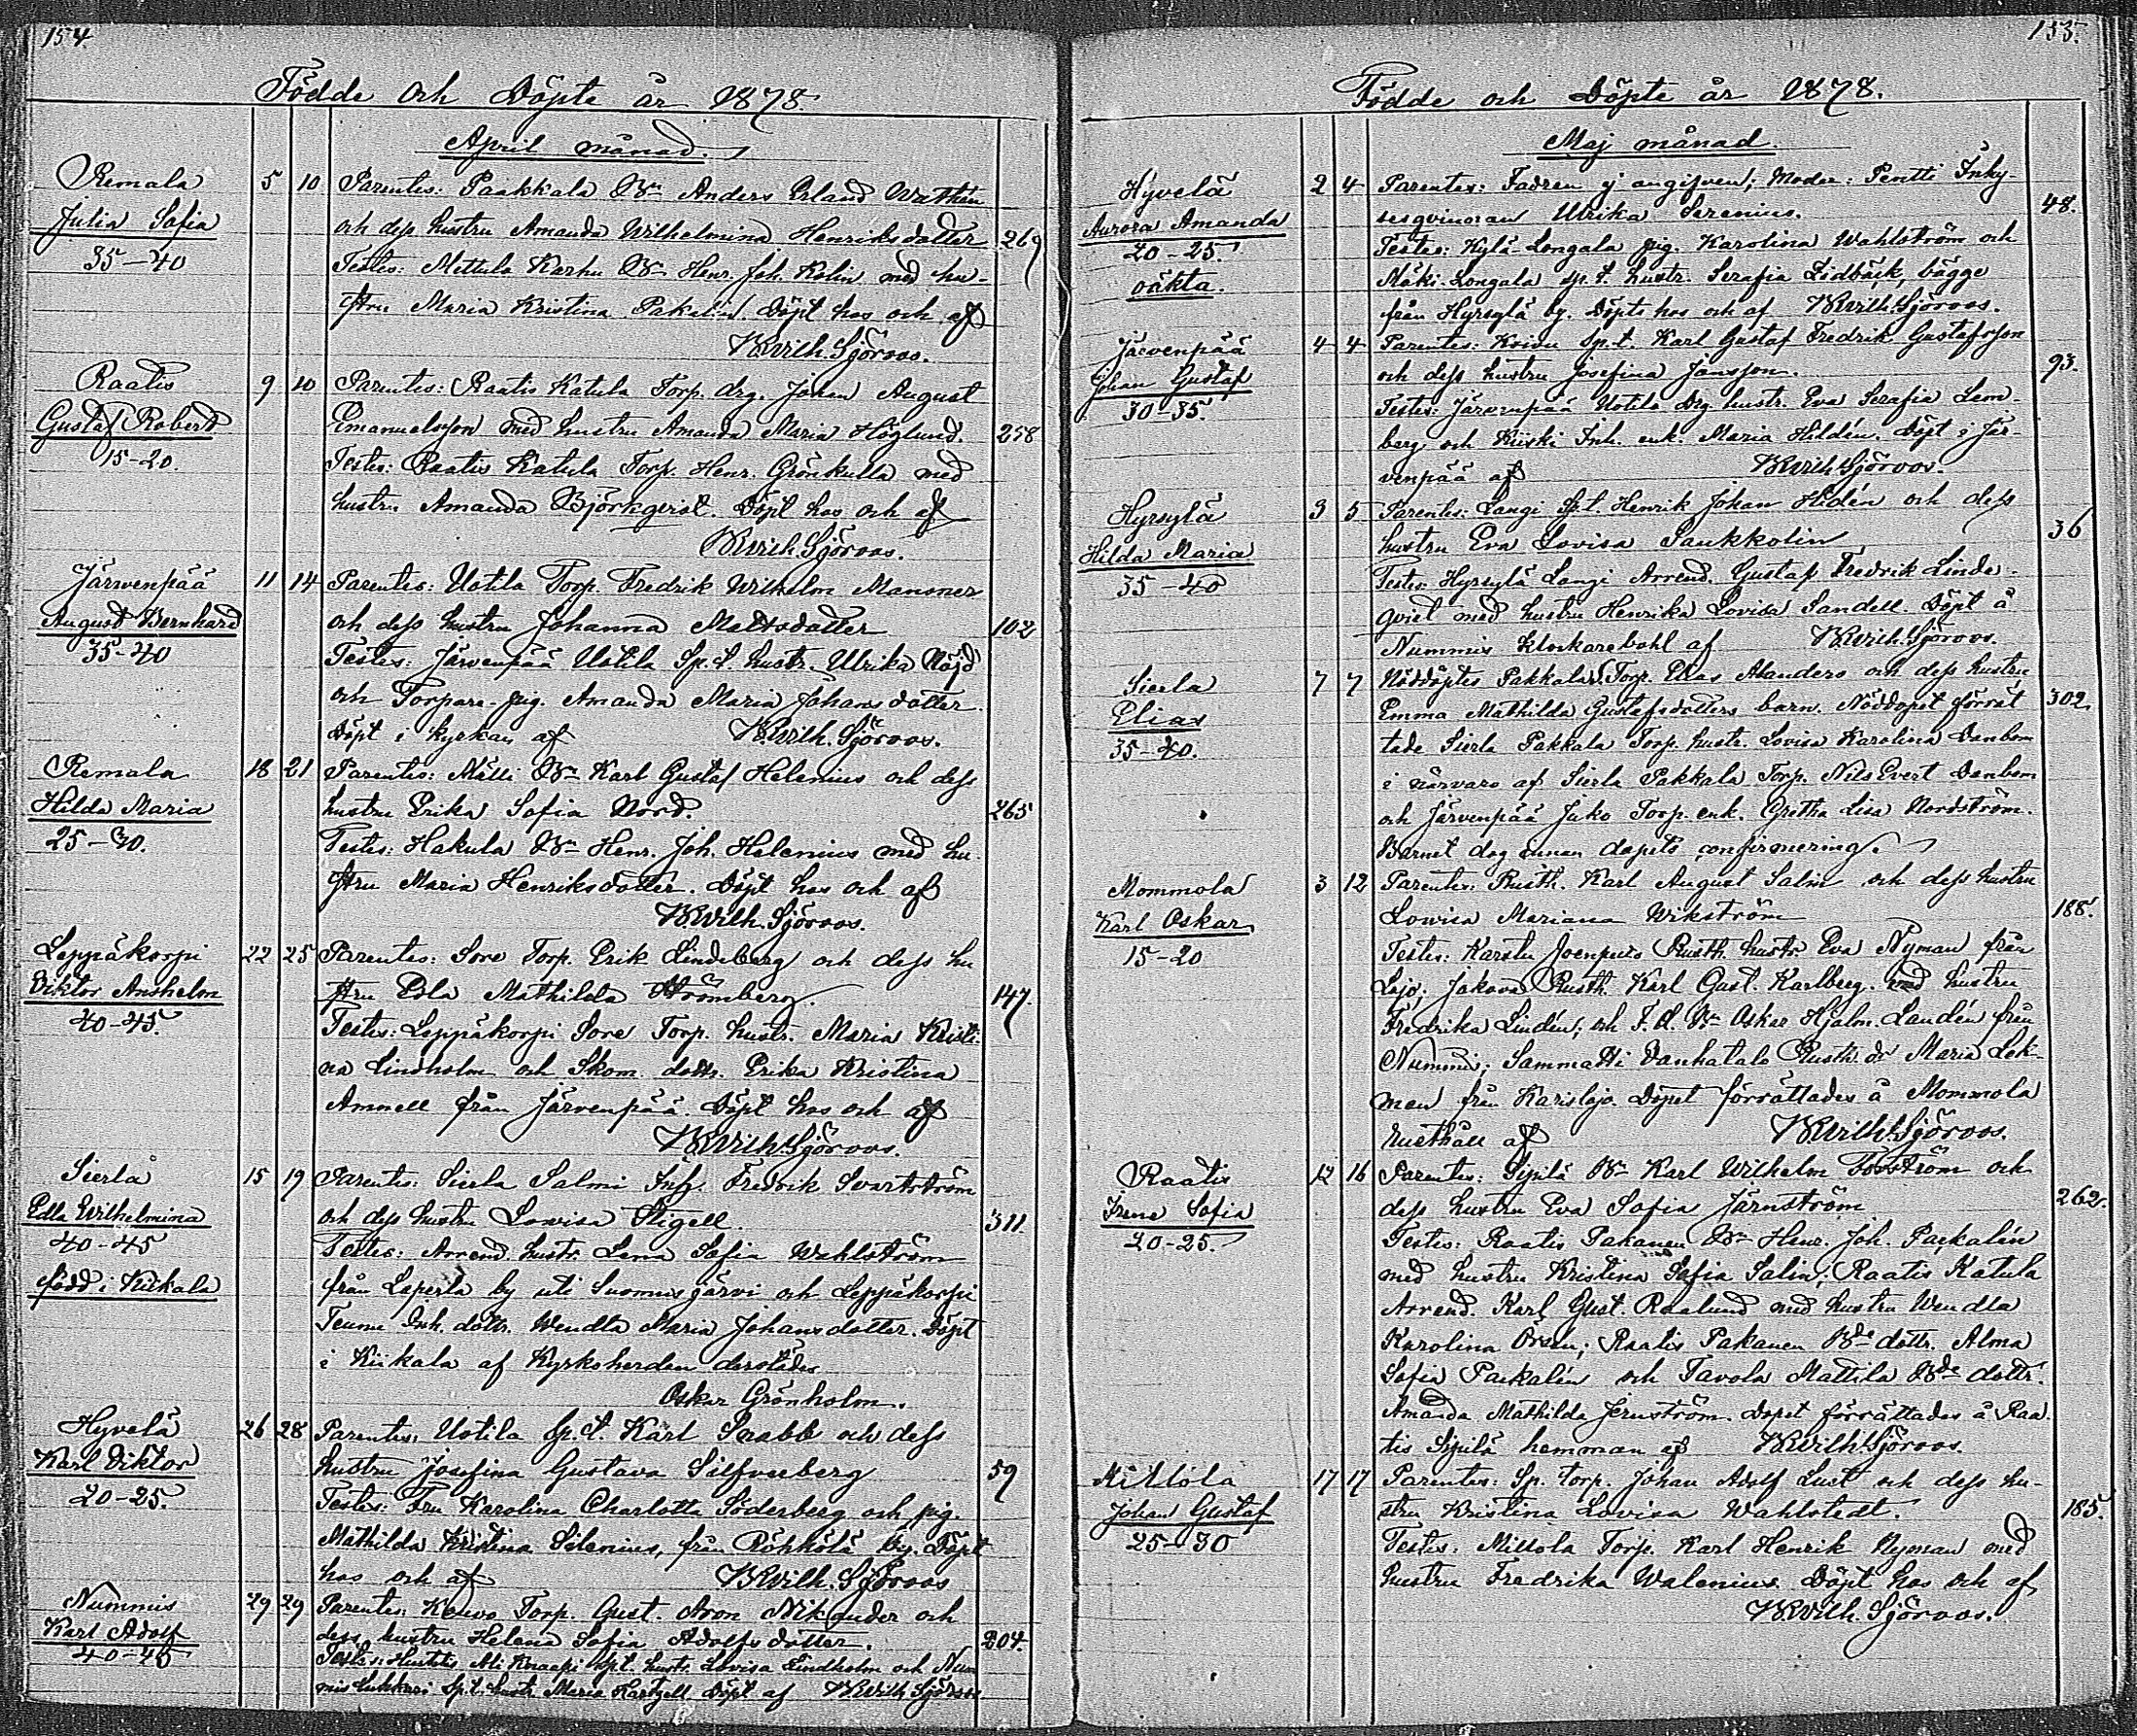 154.
Födde och Döpte år 1878
April månad.
Remala 5 10 Parentes: Paakkala Bn Anders Erland Wathén
Julia Sofia och dess hustru Amanda Wilhelmina Henriksdotter 269
35-40 Testes: Mettula Karhu Bn Henr. Joh. Kolin med hu-
stru Maria Kristina Pakalin. Döpt hos och af
K Wilh. Sjöroos.
Raatis 9 10 Parentes: Raatis Katula Torp. drg. Johan August
Gustaf Robert Emanuelsson med hustru Amanda Maria Höglund. 258
15-20. Testes: Raatis Katula Torp. Henr. Grönkulla med
hustru Amanda Björkqvist. Döpt hos och af
K Wilh. Sjöroos.
Järwenpää 11 14 Parentes: Uotila Torp. Fredrik Wilhelm Mansner
August Bernhard och dess hustru Johanna Mattsdotter 102
35-40 Testes: Järvenpää Uotila Sp.t. hustr. Ulrika Nöjd
och Torpare pig. Amanda Maria Johansdotter.
Döpt i kyrkan af K.Wilh. Sjöroos.
Remala 18 21 Parentes: Mälli Bn Karl Gustaf Helenius och dess
Hilda Maria hustru Erika Sofia Nord. 265
25-30. Testes: Hakula Bn Henr. Joh. Helenius med hu-
stru Maria Henriksdotter. Döpt hos och af
K Wilh. Sjöroos.
Leppäkorpi 22 25 Parentes: Sore Torp. Erik Lindeberg och dess hu
Viktor Anshelm stru Edla Mathilda Strömberg. 147
40-45. Testes: Leppäkorpi Sore Torp. hustr. Maria Kristi-
na Lindholm och Skom. dottr. Erika Kristina
Ammell från Järvenpää. Döpt hos och af
K Wilh. Sjöroos.
Sierla 15 19 Parentes: Sierla Salmi Inh. Fredrik Svartström
Edla Wilhelmina och dess hustru Lowisa Stigell. 311.
40-45 Testes: Arrend. hustr. Lena Sofia Wahlström
född i Kiikala från Laperla by uti Suomusjärvi och Leppäkorpi
Teumu Inh. dottr. Wendla Maria Johansdotter. Döpt
i Kiikala af Kyrkoherden derstädes
Oskar Grönholm.
Hyvelä 26 28 Parentes: Uotila Sp.t. Karl Snabb och dess
Karl Viktor hustru Josefina Gustava Silfverberg 59
20-25. Testes: Fru Karolina Charlotta Söderberg och pig.
Mathilda Kristina Silenius, från Röhkölä by. Döpt
hos och af K Wilh. Sjöroos
Nummis 29 29 Parentes: Torp. Gust. Aron Nikander och
Karl Adolf dess hustru Helena Sofia Adolfsdotter. 204.
40-45 Testes: Ali Knaapi Sp.t. hustr. Lovisa Lindholm och Num
mis Lukkari Sp.t. hustr. Maria Hartzell. Döpt af K Wilh. Sjöroos
155.
Födde och Döpte år 1878.
Maj månad.
Hyvelä 2 4 Parentes: Fadren ej angifven; Moder: Pentti Inhy-
Aurora Amanda sesqvinnan Ulrika Serenius. 48.
20-25. Testes: Kylä-Longala pig. Karolina Wahlström och
oäkta. Mäki-Longala sp.t. hustr. Serafia Lidbäck, bägge
från Hyrsylä by. Döpts hos och af K Wilh. Sjöroos.
Järvenpää 4 4 Parentes: Koivu Sp.t. Karl Gustaf Fredrik Gustafsson
Johan Gustaf och dess hustru Josefina Jansson. 93.
30-35. Testes: Järvenpää Uotila Drg. hustr. Eva Serafia Lem-
berg och Kiiski Inh. enk. Maria Hildén. Döpt i Jär-
venpää af K Wilh. Sjöroos.
Hyrsylä 3 5 Parentes: Langi Sp.t. Henrik Johan Hildén och dess
Hilda Maria hustru Eva Lovisa Saukkolin 36
35-40 Testes: Hyrsylä Langi Arrend. Gustaf Fredrik Linde-
qvist med hustru Henrika Lovisa Sandell. Döpt å
Nummis klockarebohl af K Wilh. Sjöroos.
Sierla 7 7 Nöddöptes Pakkala Torp. Elias Alanders och dess hustru
Elias Emma Mathilda Gustafsdotters barn. Nöddopet förrät 302.
35-40. tade Sierla Pakkala Torp. hustr. Lovisa Karolina Danbom
i närvaro af Sierla Pakkala Torp. Nils Evert Danbom
och Järvenpää Juko Torp. enk. Gretha Lisa Nordström.
Barnet dog innan dopets confirmering.
Mommola 3 12 Parentes: Rusth. Karl August Salin och dess hustru
Karl Oskar Lowisa Mariana Wikström 188.
15-20 Testes: Karstu Joenpuis Rusth. hustr. Eva Nyman från
Lojo; Jakova Rusth. Karl Gust. Karlberg med hustru
Fredrika Lindén; och F.d. Bn Oskar Hjalm. Landén från
Nummi; Sammatti Vanhatalo Rusth. dr Maria Lek-
man från Karislojo. Dopet förrättades å Mommola
rusthåll af K Wilh. Sjöroos.
Raatis 12 16 Parentes: Sipilä Bn Karl Wilhelm Forsström och
Irene Sofia dess hustru Eva Sofia Järnström 262.
20-25. Testes: Raatis Pakanen Bn Henr. Joh. Packalén
med hustru Kristina Sofia Salin; Raatis Katula
Arrend. Karl Gust. Roslund med hustru Wendla
Karolina Orén; Raatis Pakanen Bde dottr. Alma
Sofia Packalén och Tavola Mattila Bde dottr.
Amanda Mathilda Jernström. Dopet förrättades å Raa-
tis Sipilä hemman af K Wilh Sjöroos.
Mittola 17 17 Parentes: Sp. torp. Johan Adolf Lust och dess hu-
Johan Gustaf stru Kristina Lovisa Wahlstedt. 185.
25-30 Testes: Mittola Torp. Karl Henrik Nyman med
hustru Fredrika Walenius. Döpt hos och af
K Wilh. Sjöroos.